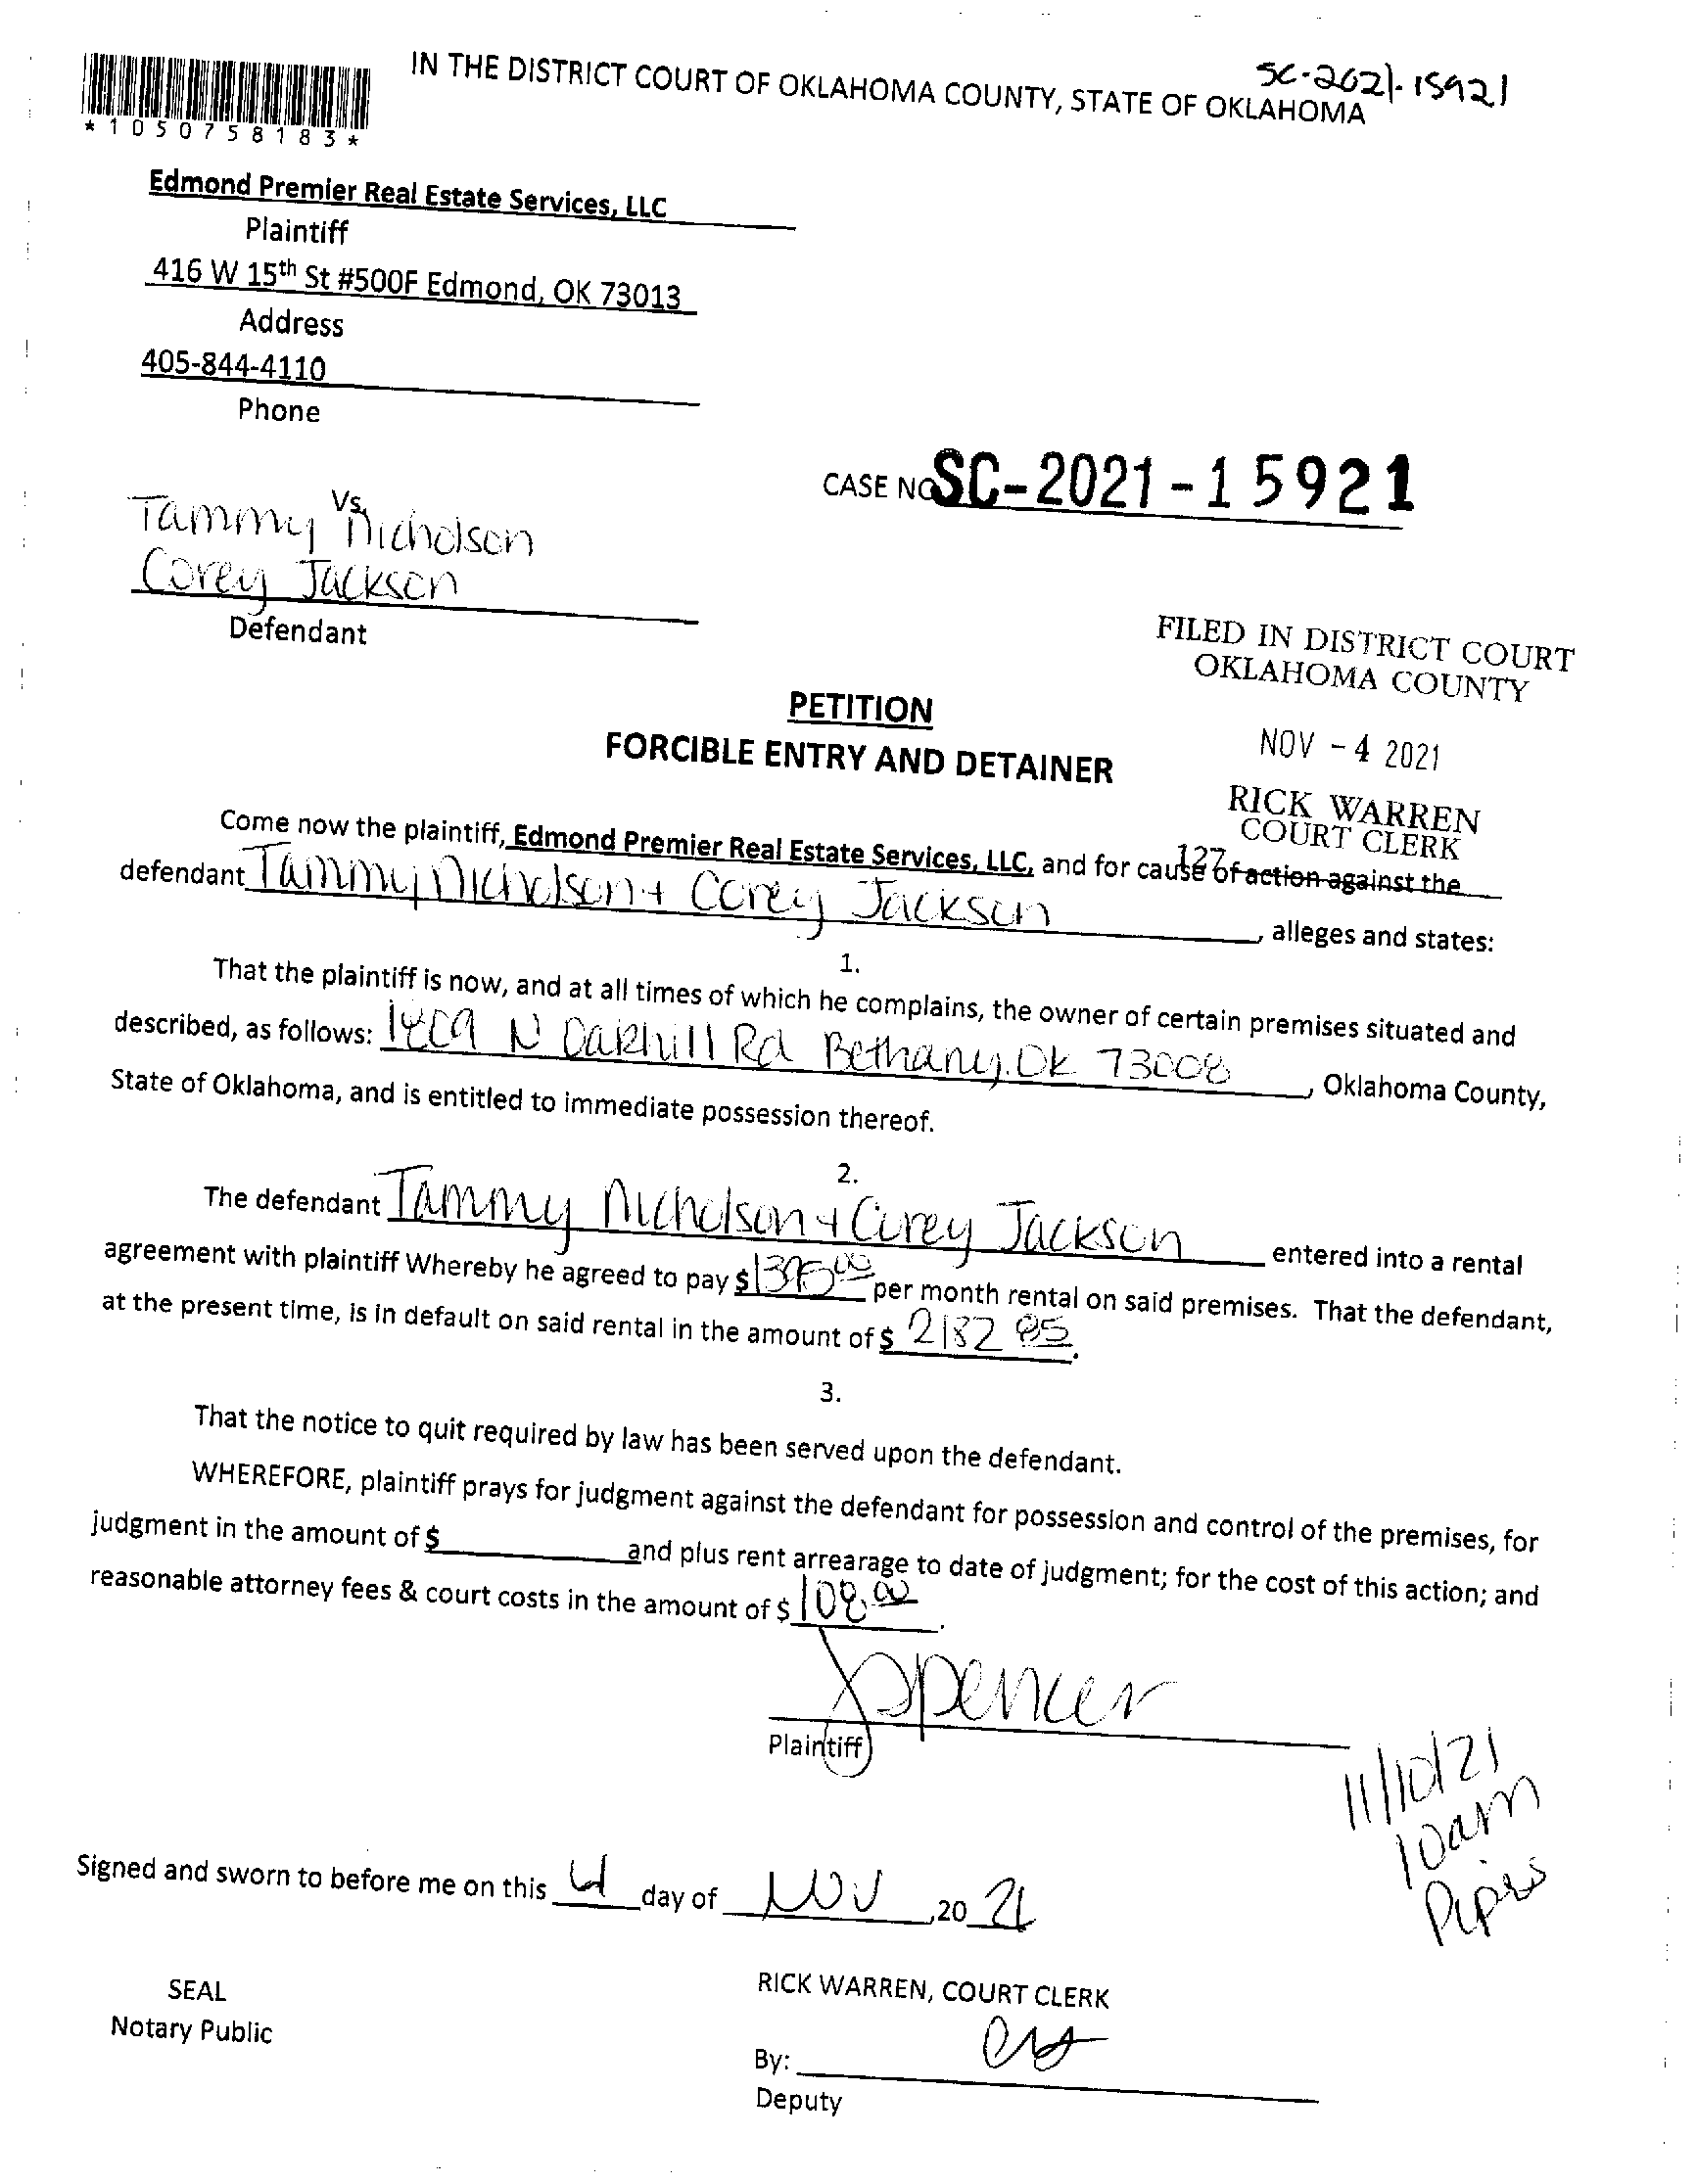 SC-2021-15921
IN THE DISTRICT COURT OF OKLAHOMA COUNTY, STATE OF OKLAHOMA
*1050758183*
Edmond Premier Real Estate Services, LLC
Plaintiff
416 W 15th St #500F Edmond, OK 73013
Address
405-844-4110
Phone
CASE NO SC-2021-15921
Vs.
Tammy Nicholson
Corey Jackson
Defendant
FILED IN DISTRICT COURT
OKLAHOMA COUNTY
NOV -4 2021
RICK WARREN
COURT CLERK
127
PETITION
FORCIBLE ENTRY AND DETAINER
Come now the plaintiff, Edmond Premier Real Estate Services, LLC, and for cause of action against the
defendant Tammy Nicholson + Corey Jackson, alleges and states:
1.
That the plaintiff is now, and at all times of which he complains, the owner of certain premises situated and
described, as follows: N Oakhill Rd Bethany, OK 73008, Oklahoma County,
State of Oklahoma, and is entitled to immediate possession thereof.
2.
The defendant Tammy Nicholson + Corey Jackson entered into a rental
agreement with plaintiff Whereby he agreed to pay $1395.00 per month rental on said premises. That the defendant,
at the present time, is in default on said rental in the amount of $ 2182 .
3.
That the notice to quit required by law has been served upon the defendant.
WHEREFORE, plaintiff prays for judgment against the defendant for possession and control of the premises, for
judgment in the amount of $ and plus rent arrearage to date of judgment; for the cost of this action; and
reasonable attorney fees & court costs in the amount of $ 108.00.
Spencer
Plaintiff
11/10/21
10am
Signed and sworn to before me on this 4 day of NOV, 20 21
SEAL
Notary Public
RICK WARREN, COURT CLERK
By:
Deputy